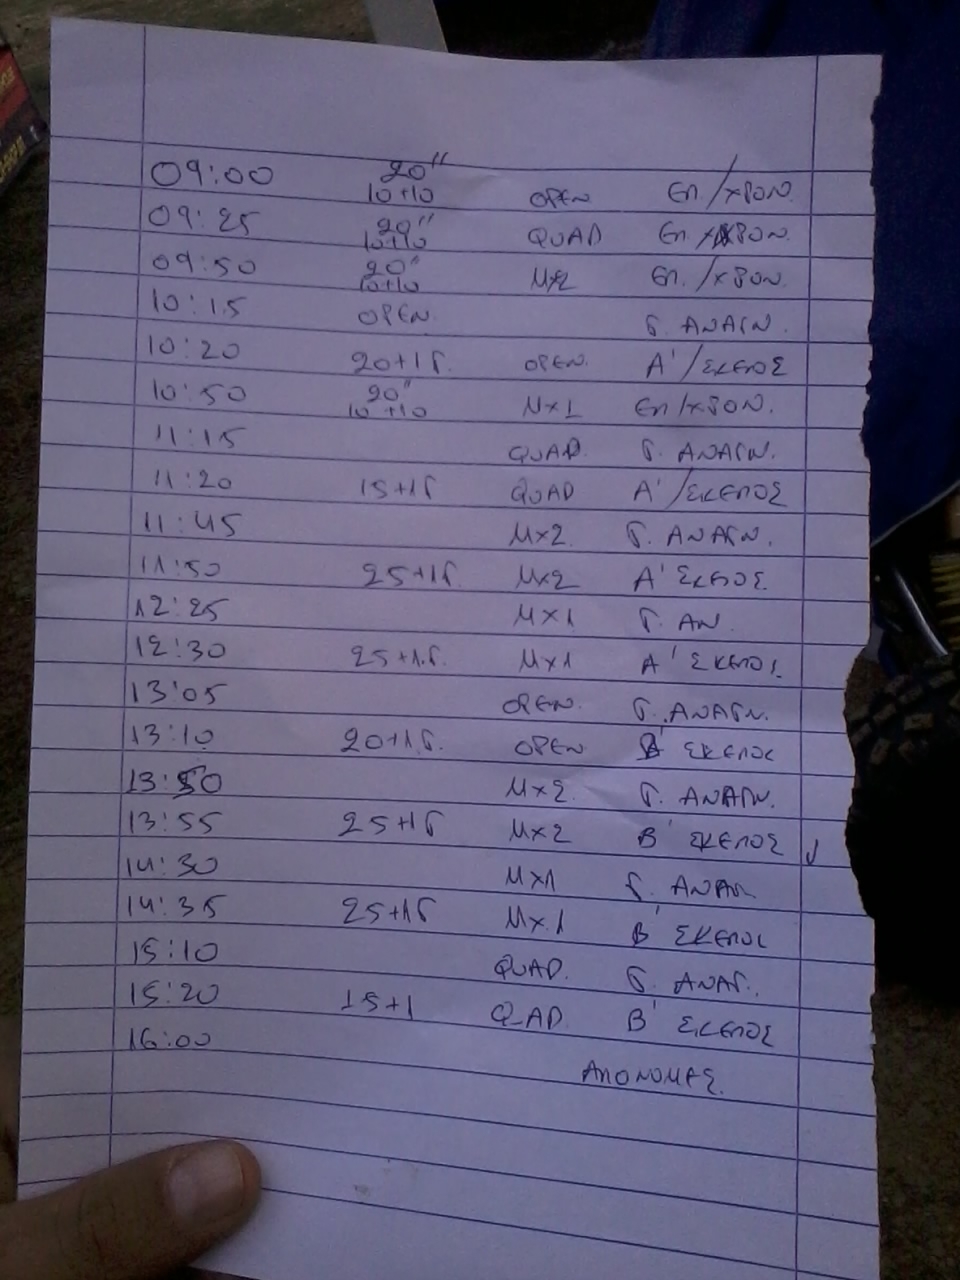 09:00 20" 10+10 OPEN ΕΠ./ΧΡΟΝ.
09:25 20" 10+10 QUAD ΕΠ./ΧΡΟΝ.
09:50 20" 10+10 MX2 ΕΠ./ΧΡΟΝ.
10:15 OPEN Γ. ΑΝΑΓΝ.
10:20 20+1Γ. OPEN. Α' /ΣΚΕΛΟΣ
10:50 20" 10+10 MX1 ΕΠ/ΧΡΟΝ.
11:15 QUAD. Γ. ΑΝΑΓΝ.
11:20 15+1Γ QUAD Α' /ΣΚΕΛΟΣ
11:45 MX2. Γ. ΑΝΑΓΝ.
11:50 25+1Γ. MX2 Α' ΣΚΕΛΟΣ
12:25 MX1 Γ. ΑΝ.
12:30 25+1.Γ. MX1 Α' ΣΚΕΛΟΣ
13:05 OPEN. Γ. ΑΝΑΓΝ.
13:10 20+1.Γ. OPEN Β' ΣΚΕΛΟΣ
13:50 MX2. Γ. ΑΝΑΓΝ.
13:55 25+1Γ MX2 Β' ΣΚΕΛΟΣ
14:30 MX1 Γ. ΑΝΑΓ.
14:35 25+1Γ MX1 Β' ΣΚΕΛΟΣ
15:10 QUAD. Γ. ΑΝΑΓ.
15:20 15+1 QUAD. Β' ΣΚΕΛΟΣ
16:00 ΑΠΟΝΟΜΕΣ.